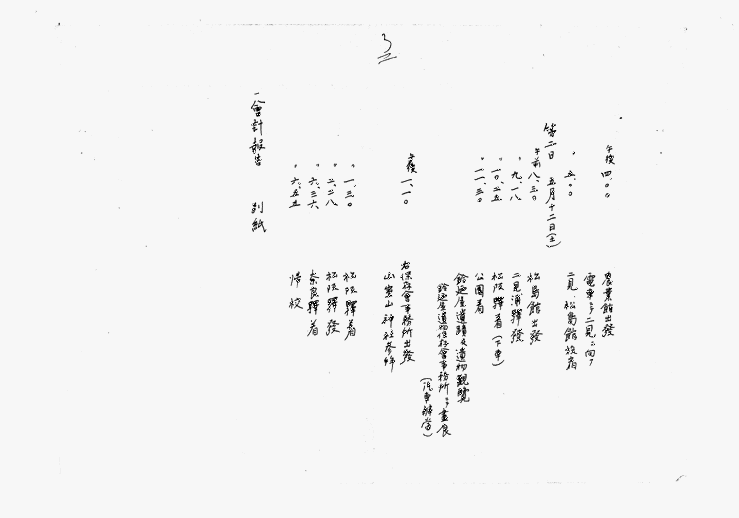 3
午後 四、〇〇 農業館出發
電車ニテ二見ニ向フ
〃 五、〇〇 二見、松島館投宿
第二日 五月十二日(土)
午前 八、三〇 松島館出發
〃 九、一八 二見浦驛發
〃 一〇、二五 松阪驛着(下車)
〃 一一、三〇 公園着
鈴廼屋遺蹟及遺物觀覽
鈴廼屋遺蹟保存會事務所ニテ晝食
(汽車辨當)
午後 一、一〇 右保存會事務所出發
山室山神社參拜
〃 一、三〇 松阪驛着
〃 二、二八 松阪驛發
〃 六、三六 奈良驛着
〃 六、五五 帰校
一、會計報告 別紙